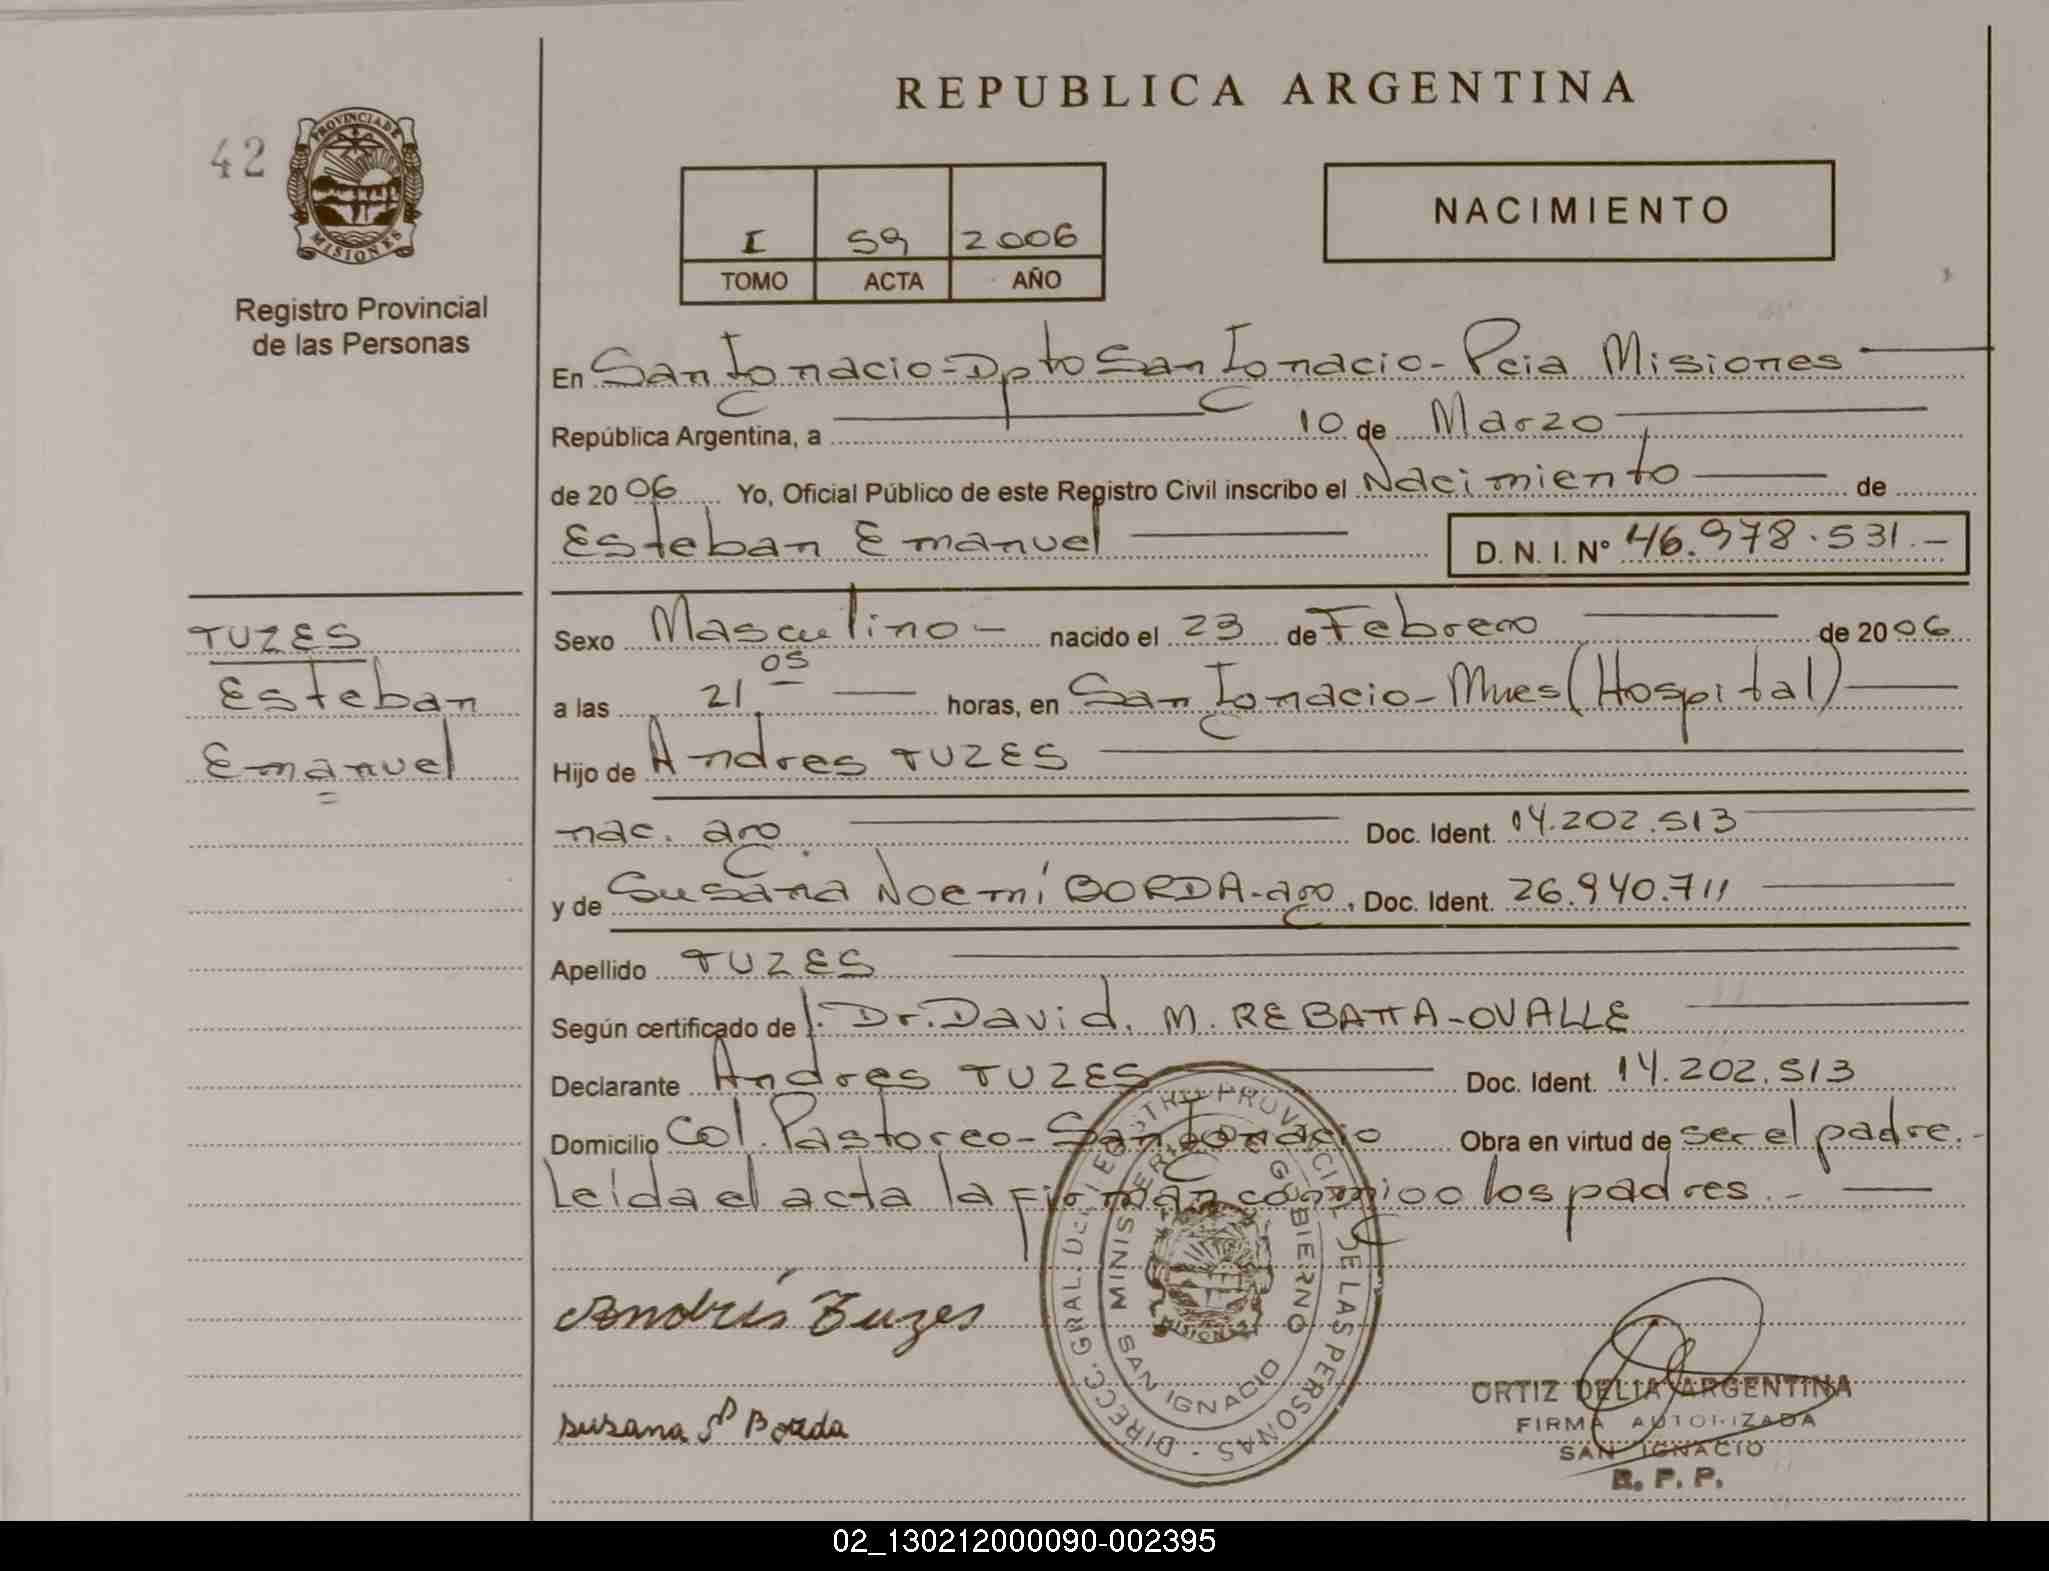 REPUBLICA ARGENTINA
42
PROVINCIA DE
MISIONES
Registro Provincial
de las Personas
I 59 2006
TOMO ACTA AÑO
NACIMIENTO
En San Ignacio - Dpto San Ignacio - Pcia Misiones
República Argentina, a 10 de Marzo
de 2006 Yo, Oficial Público de este Registro Civil inscribo el Nacimiento de
Esteban Emanuel D. N. I. N° 46.978.531.-
TUZES
Esteban
Emanuel
Sexo Masculino - nacido el 23 de Febrero de 2006
a las 21 05 horas, en San Ignacio - Mnes (Hospital)
Hijo de Andres TUZES
nac. arg. Doc. Ident. 14.202.513
y de Susana Noemí BORDA - arg. Doc. Ident. 26.940.711
Apellido TUZES
Según certificado de l. Dr. David. M. REBATTA-OVALLE
Declarante Andres TUZES Doc. Ident. 14.202.513
Domicilio Col. Pastoreo - San Ignacio Obra en virtud de ser el padre.-
Leída el acta la firman conmigo los padres.-
Andrés Tuzes
Susana Borda
DIRECC. GRAL. DEL REGISTRO PROVINCIAL DE LAS PERSONAS -
MINISTERIO DE GOBIERNO
MISIONES
SAN IGNACIO
ORTIZ DELIA ARGENTINA
FIRMA AUTORIZADA
SAN IGNACIO
R. P. P.
02_130212000090-002395